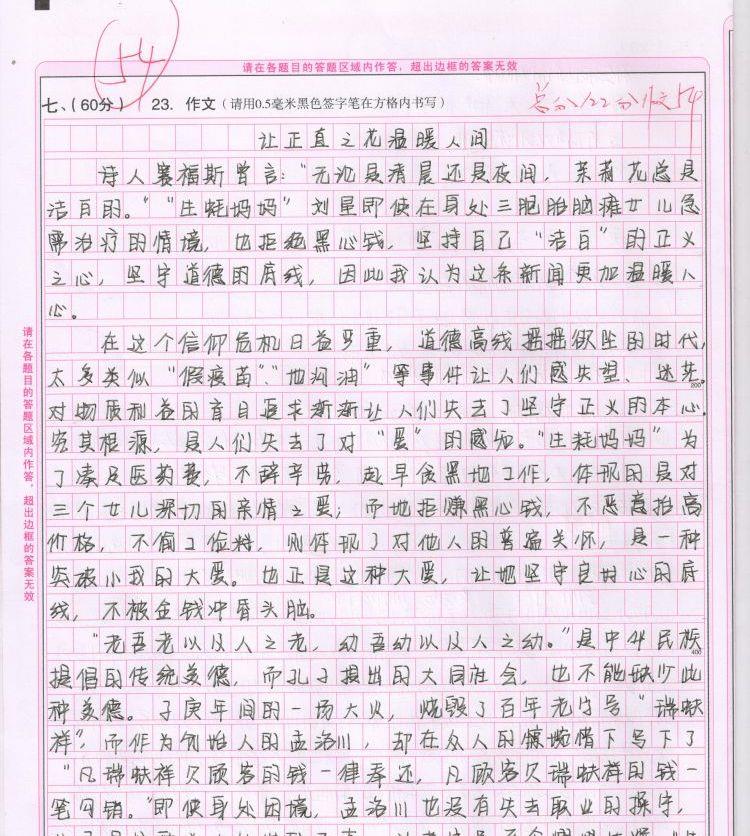 54
请在各题目的答题区域内作答，超出边框的答案无效
七、(60分) 23. 作文（请用0.5毫米黑色签字笔在方格内书写）
总分122分作文54
让正直之花温暖人间
诗人赛福斯曾言：“无论是清晨还是夜间，茉莉花总是
洁白的。”“生蚝妈妈”刘星即使在身处三胞胎脑瘫女儿急
需治疗的情境，也拒绝黑心钱，坚持自己“洁白”的正义
之心，坚守道德的底线，因此我认为这条新闻更加温暖人
心。
在这个信仰危机日益严重，道德高线摇摇欲坠的时代，
太多类似“假疫苗”、“地沟油”等事件让人们感失望、迷茫。
200
对物质利益的盲目追求渐渐让人们失去了坚守正义的本心。
究其根源，是人们失去了对“爱”的感知。“生蚝妈妈”为
了凑足医药费，不辞辛劳，起早贪黑地工作，体现的是对
三个女儿深切的亲情之爱；而她拒赚黑心钱，不恶意抬高
价格，不偷工俭料，则体现了对他人的普遍关怀，是一种
突破小我的大爱。也正是这种大爱，让她坚守良好心的底
线，不被金钱冲昏头脑。
“老吾老以及人之老，幼吾幼以及人之幼。”是中华民族
400
提倡的传统美德，而孔子提出的大同社会，也不能缺少此
种美德。子庚年间的一场大火，烧毁了百年老字号“瑞蚨
祥”，而作为创始人的孟洛川，却在众人的惊恐情下写下了
“凡瑞蚨祥欠顾客的钱一律奉还，凡顾客欠瑞蚨祥的钱一
笔勾销。”即使身处困境，孟洛川也没有失去职业的操守，
请在各题目的答题区域内作答，超出边框的答案无效